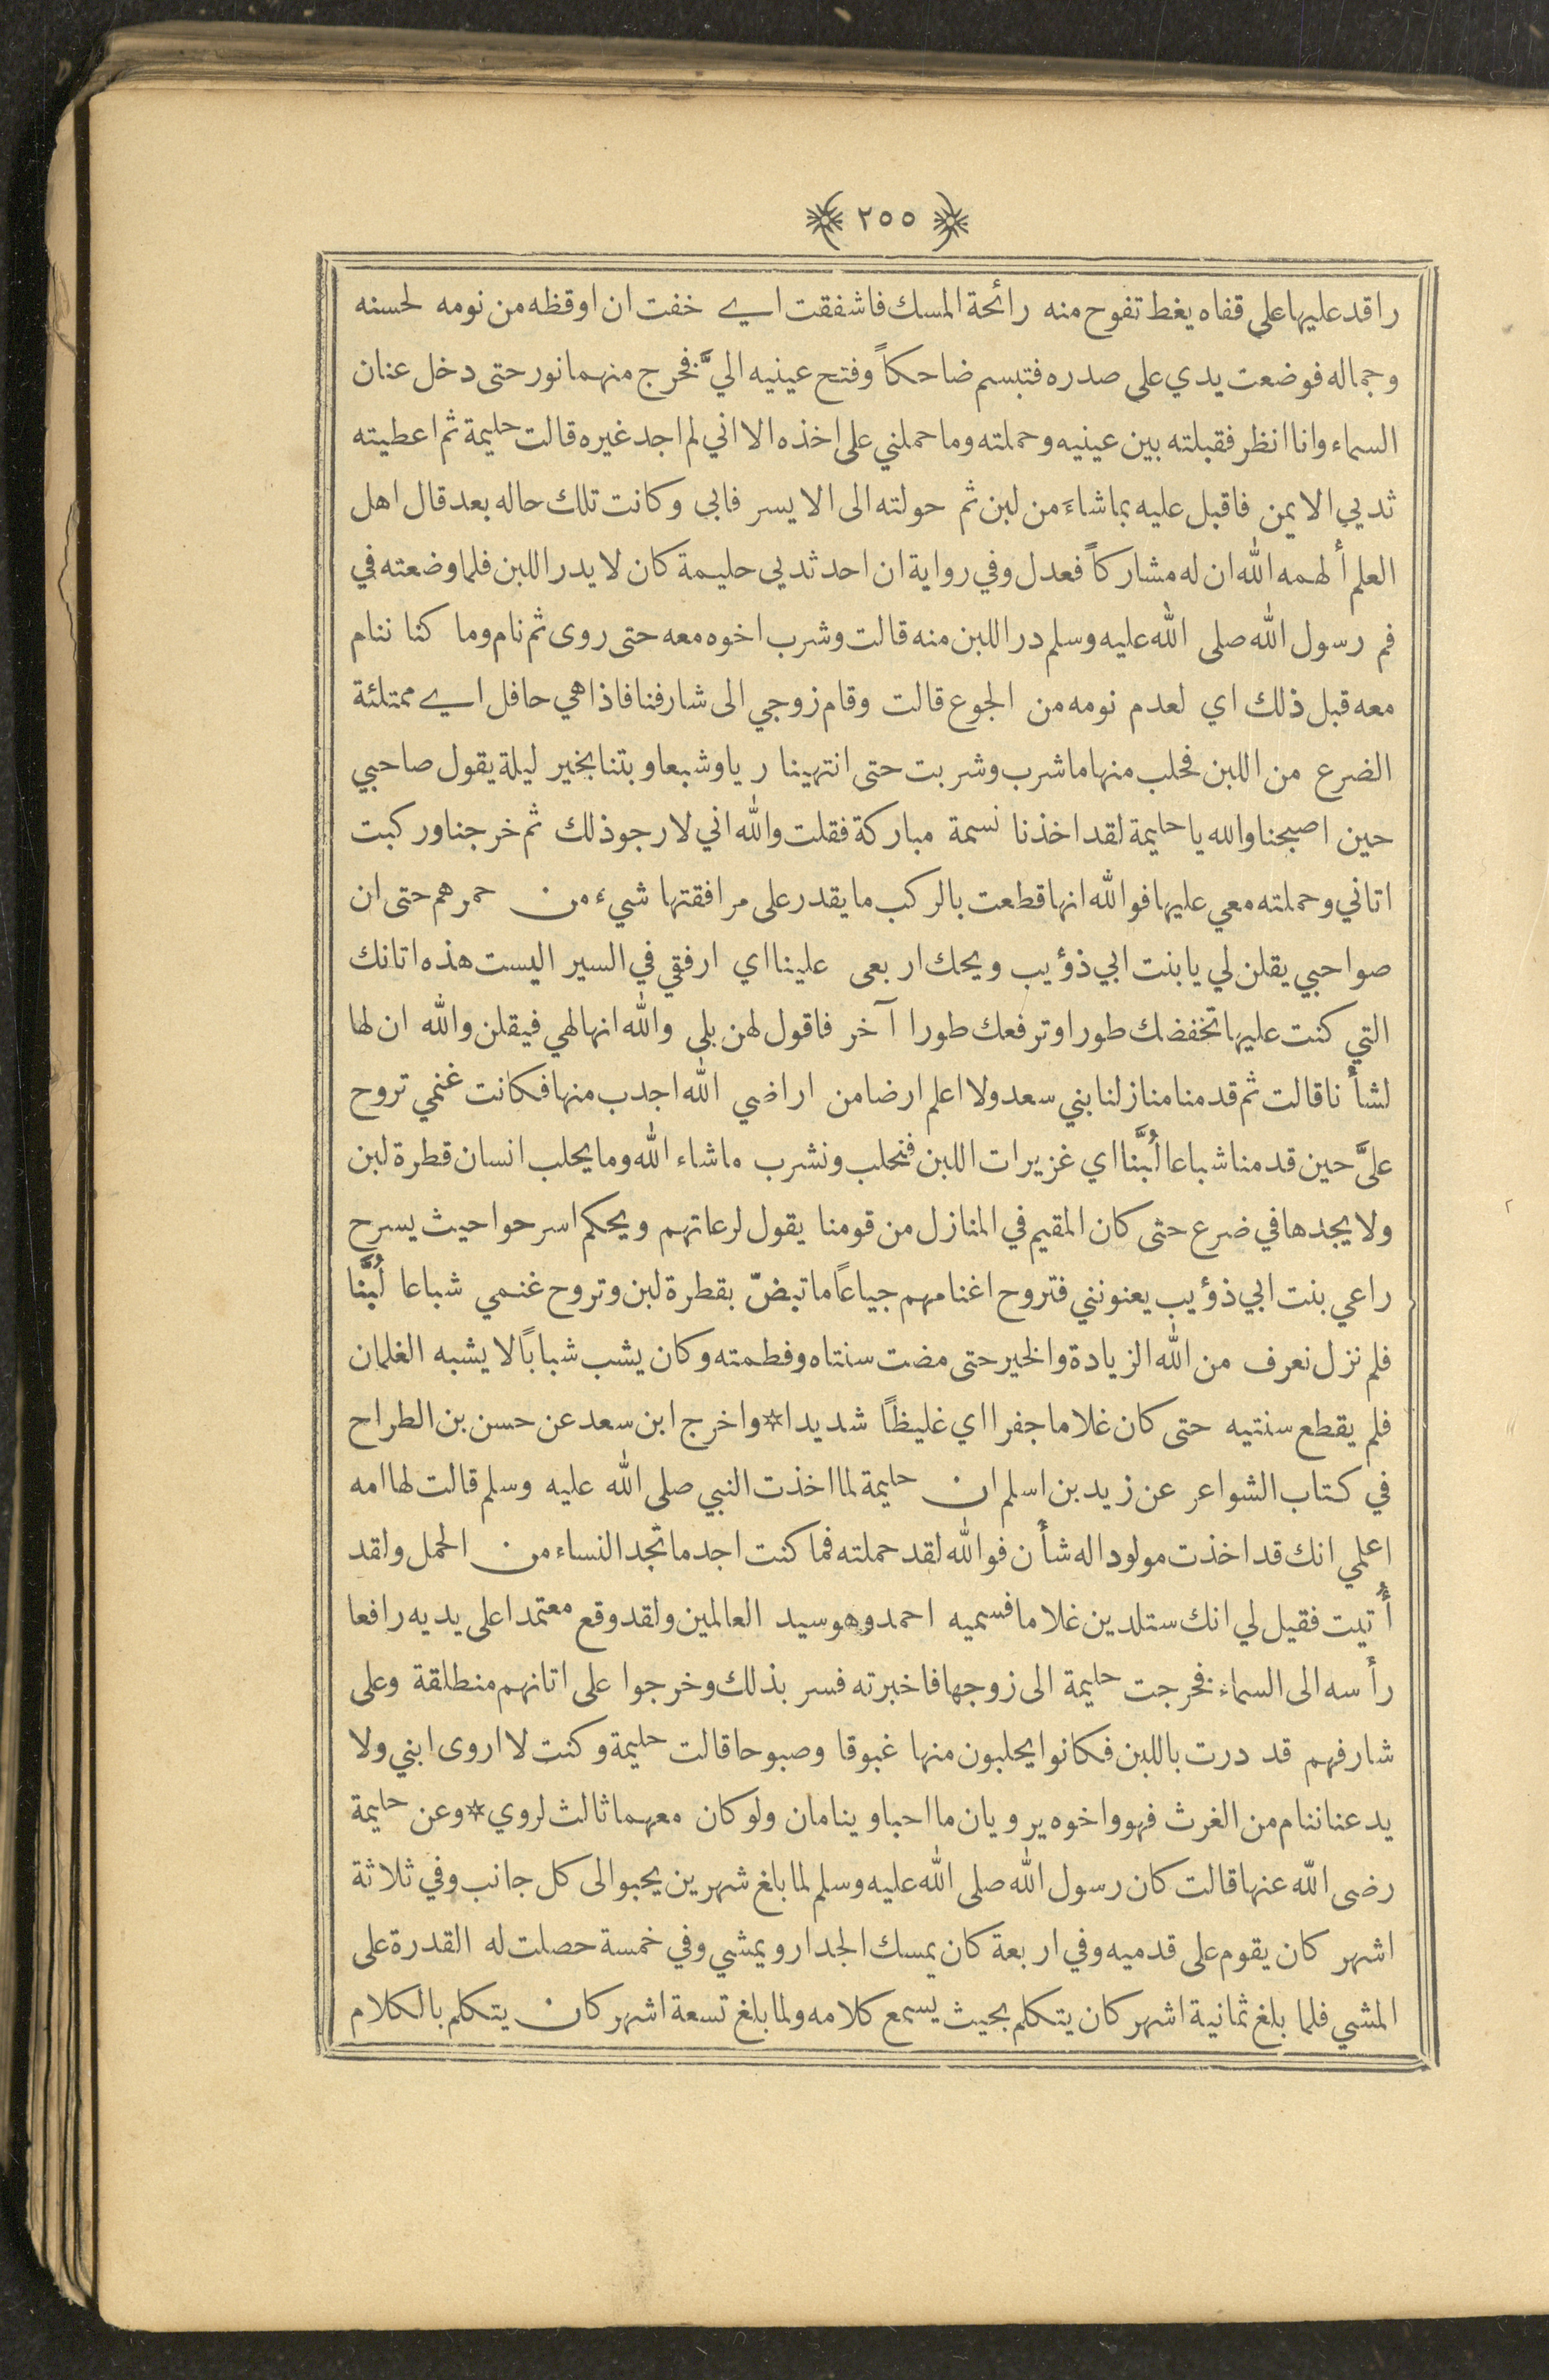 ﴿ ٢٥٥ ﴾
راقد عليها على قفاه يغط تفوح منه رائحة المسك فاشفقت اي خفت ان اوقظه من نومه لحسنه
وجماله فوضعت يدي على صدره فتبسم ضاحكاً وفتح عينيه اليَّ فخرج منهما نور حتى دخل عنان
السماء وانا انظر فقبلته بين عينيه وحملته وما حملني على اخذه الا اني لم اجد غيره قالت حليمة ثم اعطيته
ثديي الايمن فاقبل عليه بما شاءَ من لبن ثم حولته الى الايسر فابى وكانت تلك حاله بعد قال اهل
العلم أَلهمه الله ان له مشاركاً فعدل وفي رواية ان احد ثديي حليمة كان لا يدر اللبن فلما وضعته في
فم رسول الله صلى الله عليه وسلم در اللبن منه قالت وشرب اخوه معه حتى روى ثم نام وما كنا ننام
معه قبل ذلك اي لعدم نومه من الجوع قالت وقام زوجي الى شارفنا فاذا هي حافل اي ممتلئة
الضرع من اللبن فحلب منها ما شرب وشربت حتى انتهينا ريا وشبعا وبتنا بخير ليلة يقول صاحبي
حين اصبحنا والله يا حليمة لقد اخذنا نسمة مباركة فقلت والله اني لارجو ذلك ثم خرجنا وركبت
اتاني وحملته معي عليها فوالله انها قطعت بالركب ما يقدر على مرافقتها شيء من حمرهم حتى ان
صواحبي يقلن لي يا بنت ابي ذؤيب ويحك اربعى علينا اي ارفقي في السير اليست هذه اتانك
التي كنت عليها تخفضك طورا وترفعك طورا آخر فاقول لهن بلى والله انها لهي فيقلن والله ان لها
لشأنا قالت ثم قدمنا منازلنا بني سعد ولا اعلم ارضا من اراضي الله اجدب منها فكانت غنمي تروح
علىَّ حين قدمنا شباعا لُبَّنا اي غزيرات اللبن فنحلب ونشرب ما شاء الله وما يحلب انسان قطرة لبن
ولا يجدها في ضرع حتى كان المقيم في المنازل من قومنا يقول لرعاتهم ويحكم اسرحوا حيث يسرح
راعي بنت ابي ذؤيب يعنونني فتروح اغنامهم جياعاً ما تبضّ بقطرة لبن وتروح غنمي شباعا لُبَّنا
فلم نزل نعرف من الله الزيادة والخير حتى مضت سنتاه وفطمته وكان يشب شباباً لا يشبه الغلمان
فلم يقطع سنتيه حتى كان غلاما جفرا اي غليظاً شديدا * واخرج ابن سعد عن حسن بن الطراح
في كتاب الشواعر عن زيد بن اسلم ان حليمة لما اخذت النبي صلى الله عليه وسلم قالت لها امه
اعلمي انك قد اخذت مولودا له شأن فوالله لقد حملته فما كنت اجد ما تجد النساء من الحمل ولقد
أُتيت فقيل لي انك ستلدين غلاما فسميه احمد وهو سيد العالمين ولقد وقع معتمدا على يديه رافعا
رأسه الى السماء فخرجت حليمة الى زوجها فاخبرته فسر بذلك وخرجوا على اتانهم منطلقة وعلى
شارفهم قد درت باللبن فكانوا يحلبون منها غبوقا وصبوحا قالت حليمة وكنت لا اروى ابني ولا
يدعنا ننام من الغرث فهو واخوه يرويان ما احبا وينامان ولو كان معهما ثالث لروي * وعن حليمة
رضى الله عنها قالت كان رسول الله صلى الله عليه وسلم لما بلغ شهرين يحبو الى كل جانب وفي ثلاثة
اشهر كان يقوم على قدميه وفي اربعة كان يمسك الجدار ويمشي وفي خمسة حصلت له القدرة على
المشي فلما بلغ ثمانية اشهر كان يتكلم بحيث يسمع كلامه ولما بلغ تسعة اشهر كان يتكلم بالكلام